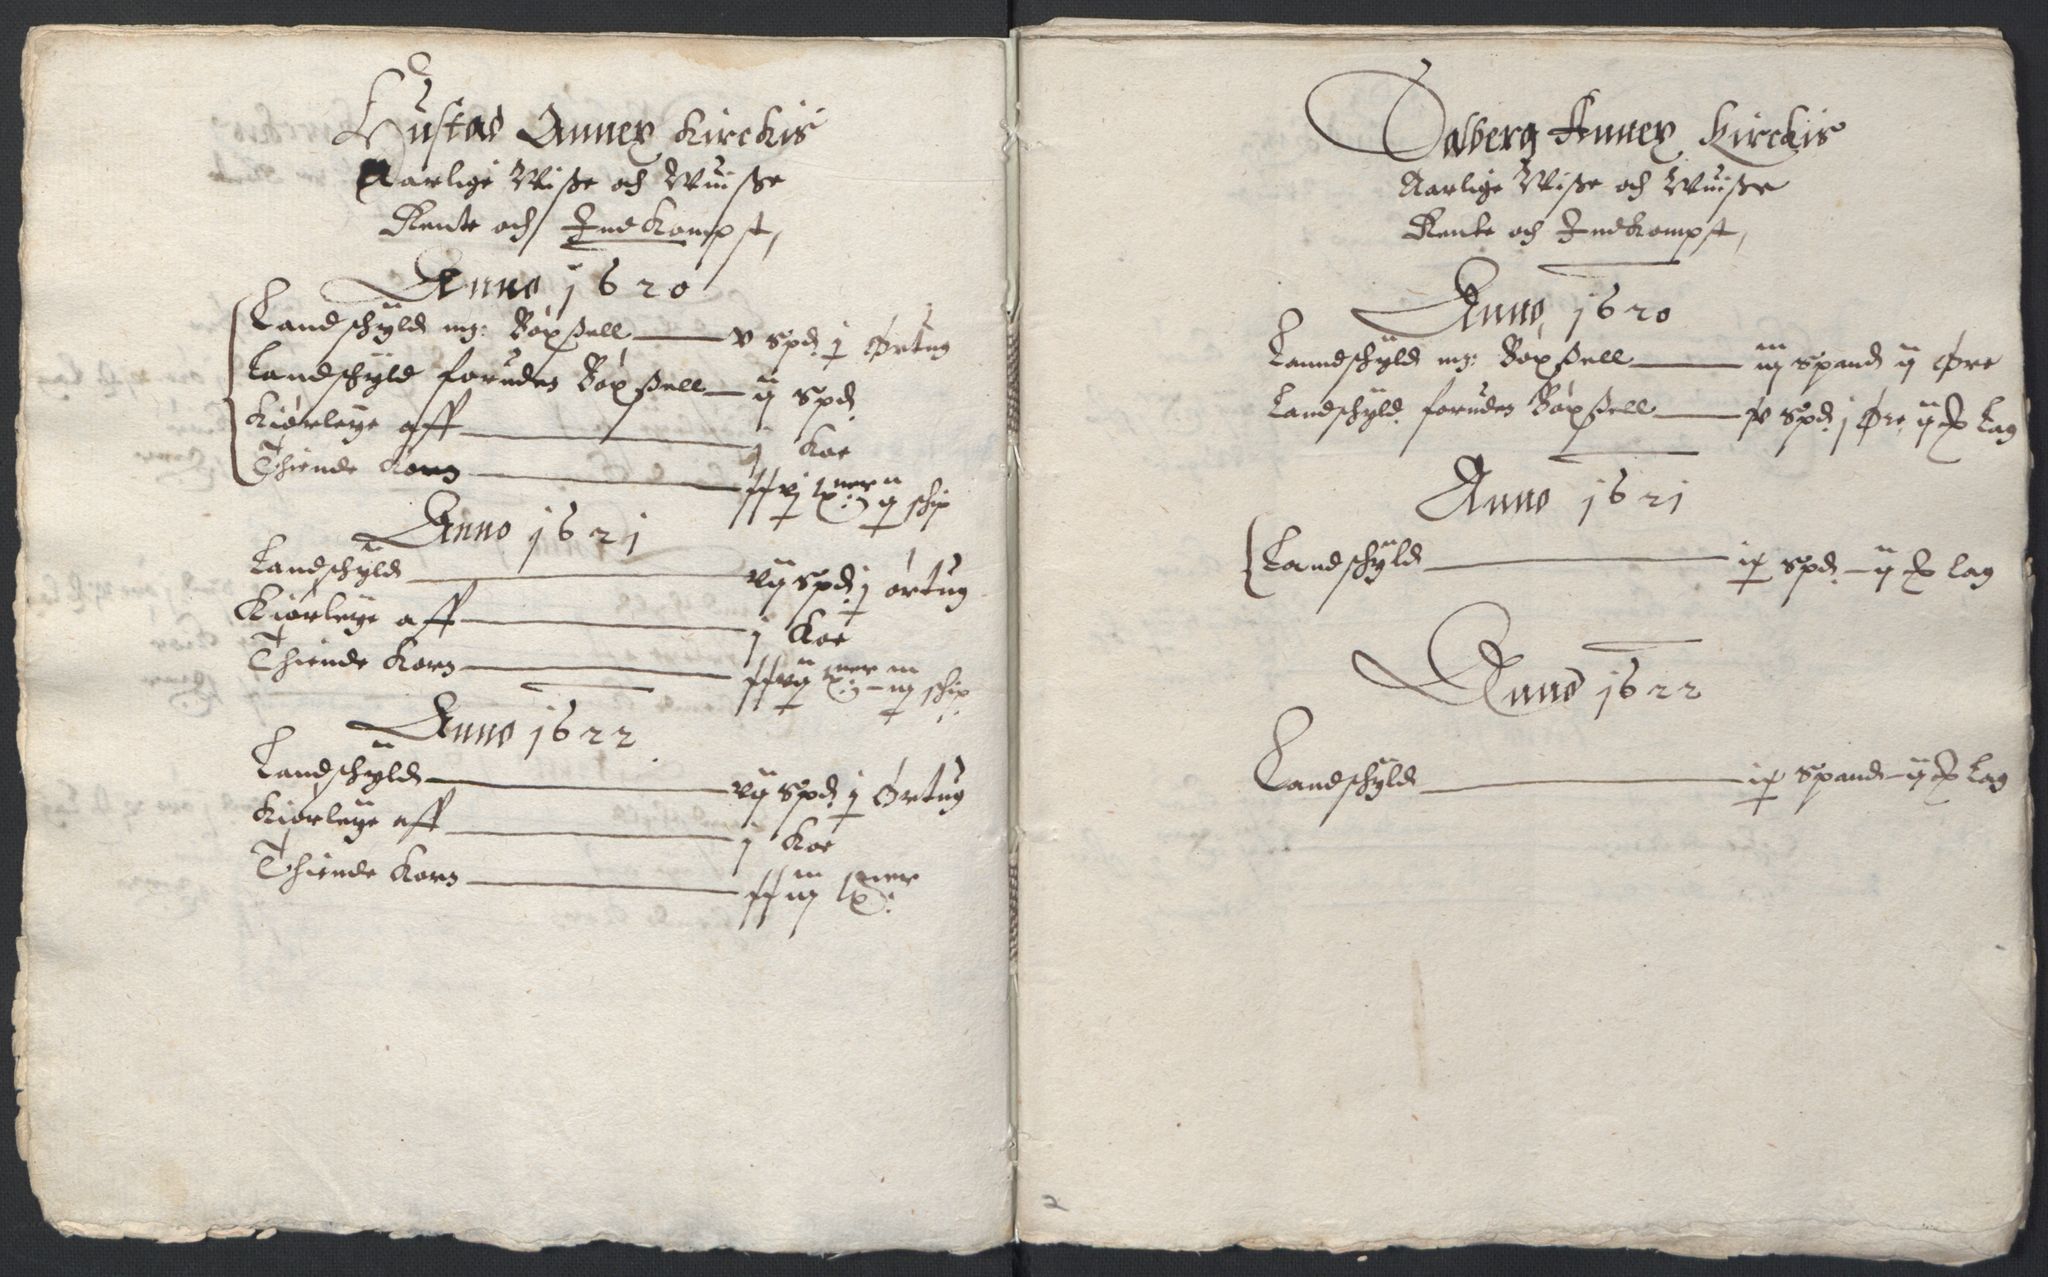 Vustad Annex Kirckis
Aarlige Wiße och Wuiße
Rente och Indkompst,
Anno 1620
Landschyld mz: Böxßell — v Spd: j Ørtug
Landschyld foruden Böxßell — ij Spd:
Kiörleye aff — j Koe
Thiende Korn — schip
Anno 1621
Landschyld — vij Spd: j ørtug
Kiörleye aff — j Koe
Thiende Korn — schip:
Anno 1622
Landschyld — vij Spd: j Ørtug
Kiörleye aff — j Koe
Thiende Korn
Ødlberg Annex Kirckis
Aarlige Wiße och Wuiße
Rente och Indkompst,
Anno 1620
Lanndschyld mz: Böxßell — iij Spand ij Øre
Landschyld foruden Böxßell — Spd: j Øre, ij Lag
Anno 1621
Landschyld — Spd: – ij Lag
Anno 1622
Landschyld — Spand – ij Lag
2